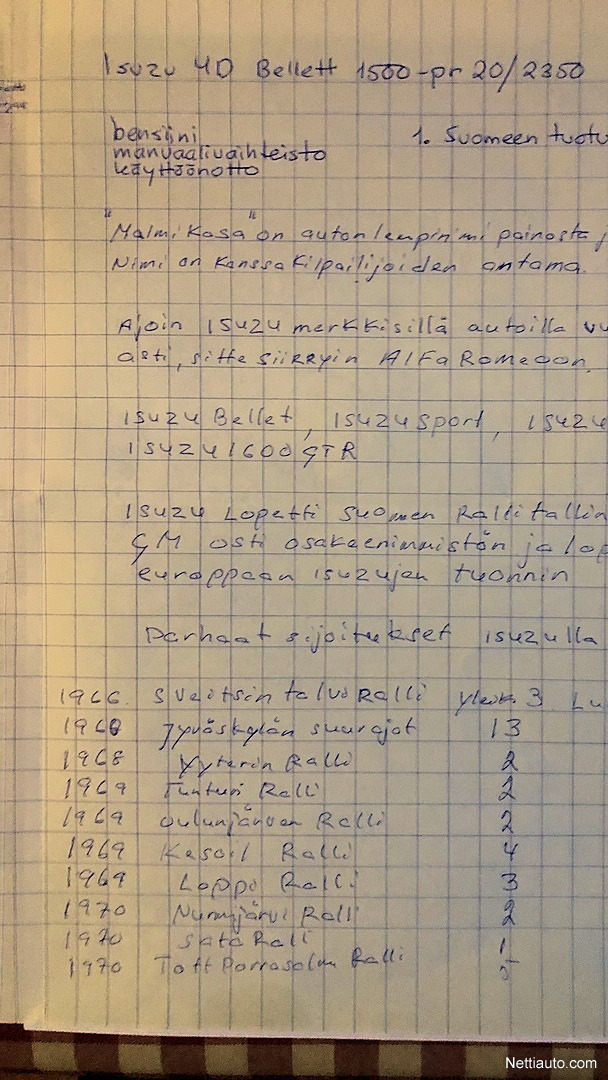 Isuzu 4D Bellett 1500-pr 20/2350
bensiini
1. Suomeen tuotu
manuaalivaihteisto
käyttöönotto
"Malmikasa" on auton lempinimi painosta j
Nimi on kanssakilpailijoiden antama.
Ajoin ISUZU merkkisillä autoilla vu
asti, sitte siirryin Alfa Romeoon.
ISUZU Bellet, ISUZU Sport, ISUZU
ISUZU 1600 GTR
ISUZU Lopetti Suomen Rallitallin
GM osti osakeenimmistön ja lop
europpaan isuzujen tuonnin
Parhaat sijoitukset isuzulla
1966. Sveitsin talvi Ralli yleik 3 Lu
1968 Jyväskylän suurajot 13
1968 Yyterin Ralli 2
1969 Tunturi Ralli 2
1969 Oulunjärven Ralli 2
1969 Kasoil Ralli 4
1969 Loppi Ralli 3
1970 Nurmijärvi Ralli 2
1970 Sata Ralli 1
1970 Ralli
Nettiauto.com